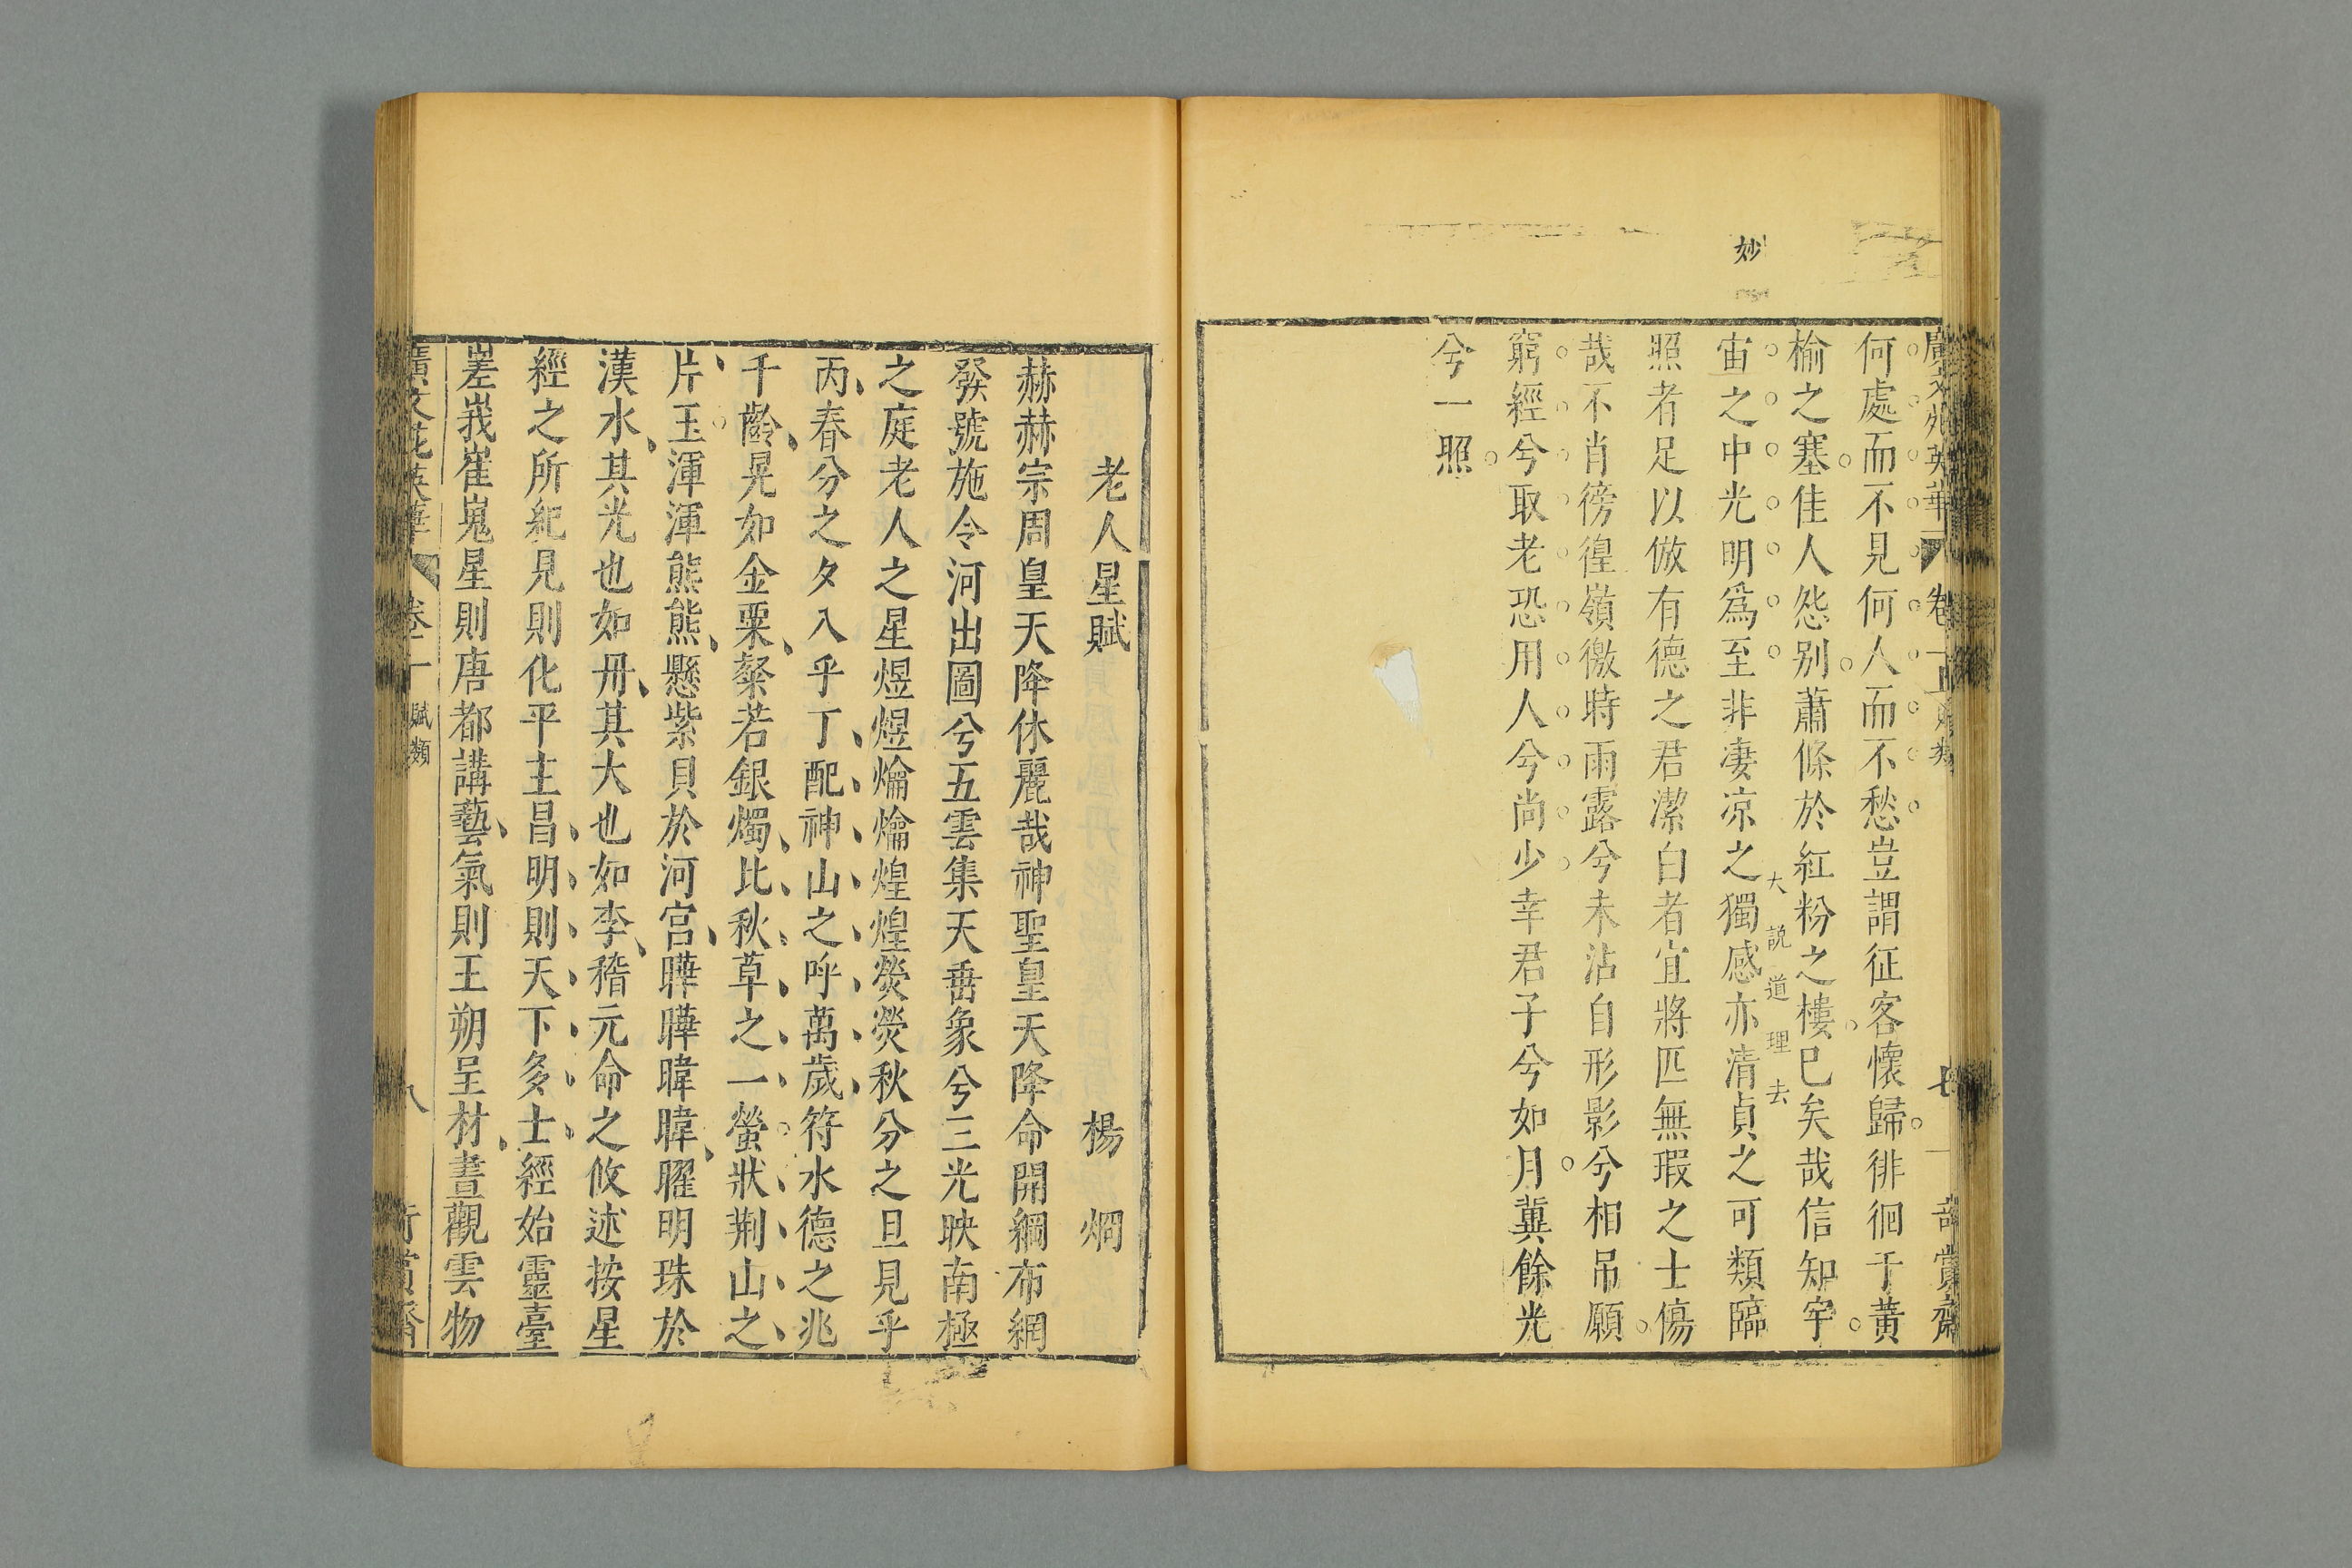 妙
何處而不見何人而不愁豈謂征客懷歸徘徊于黃
榆之塞佳人怨別蕭條於紅粉之樓巳矣哉信知宇
大説道理去
宙之中光明爲至非凄凉之獨感亦清貞之可類臨
照者足以倣有德之君潔白者宜將匹無瑕之士傷
哉不肖徬徨嶺徼時雨露兮未沾自形影兮相吊願
窮經兮取老恐用人兮尚少幸君子兮如月冀餘光
兮一照
老人星賦 楊烱
赫赫宗周皇天降休麗哉神聖皇天降命開綱布網
發號施令河出圖兮五雲集天垂象兮三光映南極
之庭老人之星煜煜爚爚煌煌熒熒秋分之旦見乎
丙春分之夕入乎丁配神山之呼萬歲符水德之兆
千齡晃如金粟粲若銀燭比秋草之一螢狀荆山之
片玉渾渾熊熊懸紫貝於河宮曄曄暐暐曜明珠於
漢水其光也如丹其大也如李稽元命之攸述按星
經之所紀見則化平主昌明則天下多士經始靈臺
嵳峩崔嵬星則唐都講藝氣則王朔呈材晝觀雲物
卷一 賦類 八